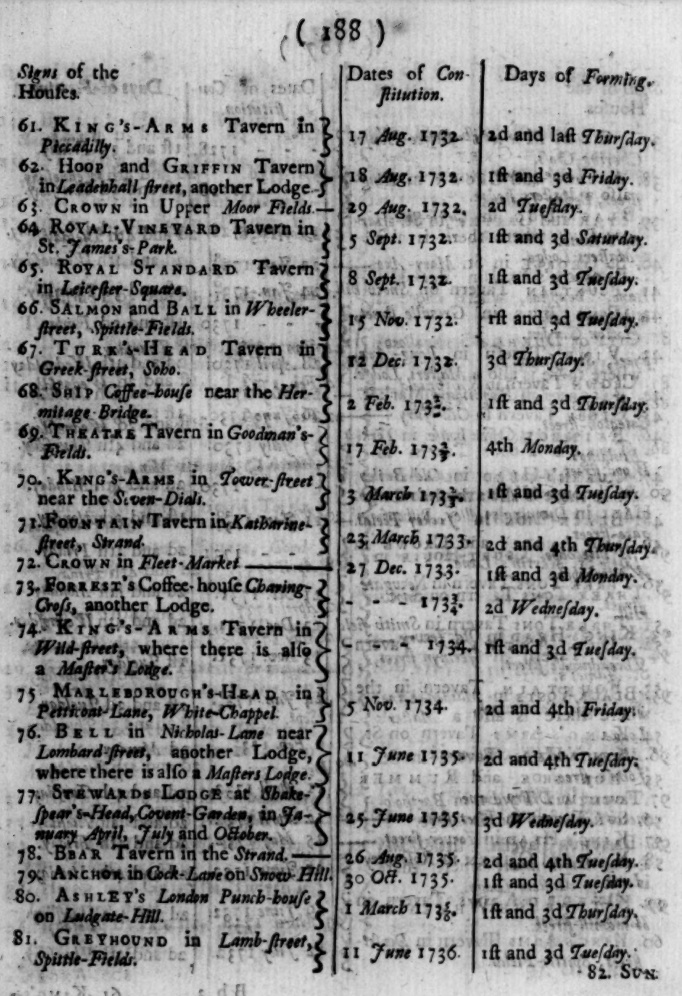 ( 188 )
Signs of the Houſes. Dates of Conſtitution. Days of Forming.
61. KING'S-ARMS Tavern in
Piccadilly. 17 Aug. 1732. 2d and laſt Thurſday.
62. HOOP and GRIFFIN Tavern
in Leadenhall ſtreet, another Lodge 18 Aug. 1732. 1ſt and 3d Friday.
63. CROWN in Upper Moor Fields.— 29 Aug. 1732. 2d Tueſday.
64 ROYAL-VINEYARD Tavern in
St. James's-Park. 5 Sept. 1732. 1ſt and 3d Saturday.
65. ROYAL STANDARD Tavern
in Leiceſter-Square. 8 Sept. 1732. 1ſt and 3d Tueſday.
66. SALMON and BALL in Wheeler-
ſtreet, Spittle-Fields. 15 Nov. 1732. 1ſt and 3d Tueſday.
67. TURK'S-HEAD Tavern in
Greek-ſtreet, Soho. 12 Dec. 1732. 3d Thurſday.
68. SHIP Coffee-houſe near the Her-
mitage Bridge. 2 Feb. 173⅔. 1ſt and 3d Thurſday.
69. THEATRE Tavern in Goodman's-
Fields. 17 Feb. 173⅔. 4th Monday.
70. KING'S-ARMS in Tower-ſtreet
near the Seven-Dials. 3 March 173⅔. 1ſt and 3d Tueſday.
71. FOUNTAIN Tavern in Katharine-
ſtreet, Strand. 23 March 1733. 2d and 4th Thurſday.
72. CROWN in Fleet-Market — 27 Dec. 1733. 1ſt and 3d Monday.
73. FORREST'S Coffee-houſe Charing-
Croſs, another Lodge. - - - 173¾. 2d Wedneſday.
74. KING'S-ARMS Tavern in
Wild-ſtreet, where there is alſo
a Maſter's Lodge. - - - 1734. 1ſt and 3d Tueſday.
75 MARLEBOROUGH'S-HEAD in
Petticoat-Lane, White-Chappel. 5 Nov. 1734. 2d and 4th Friday.
76. BELL in Nicholas-Lane near
Lombard-ſtreet, another Lodge,
where there is alſo a Maſters Lodge. 11 June 1735. 2d and 4th Tueſday.
77. STEWARDS LODGE at Shake-
ſpear's-Head, Covent-Garden, in Ja-
nuary April, July and October. 25 June 1735. 3d Wedneſday.
78. BEAR Tavern in the Strand. — 26 Aug. 1735. 2d and 4th Tueſday.
79. ANCHOR in Cock-Lane on Snow-Hill. 30 Oct. 1735. 1ſt and 3d Tueſday.
80. ASHLEY'S London Punch-houſe
on Ludgate-Hill. 1 March 173⅚. 1ſt and 3d Thurſday.
81. GREYHOUND in Lamb-ſtreet,
Spittle-Fields. 11 June 1736. 1ſt and 3d Tueſday.
82. SUN.